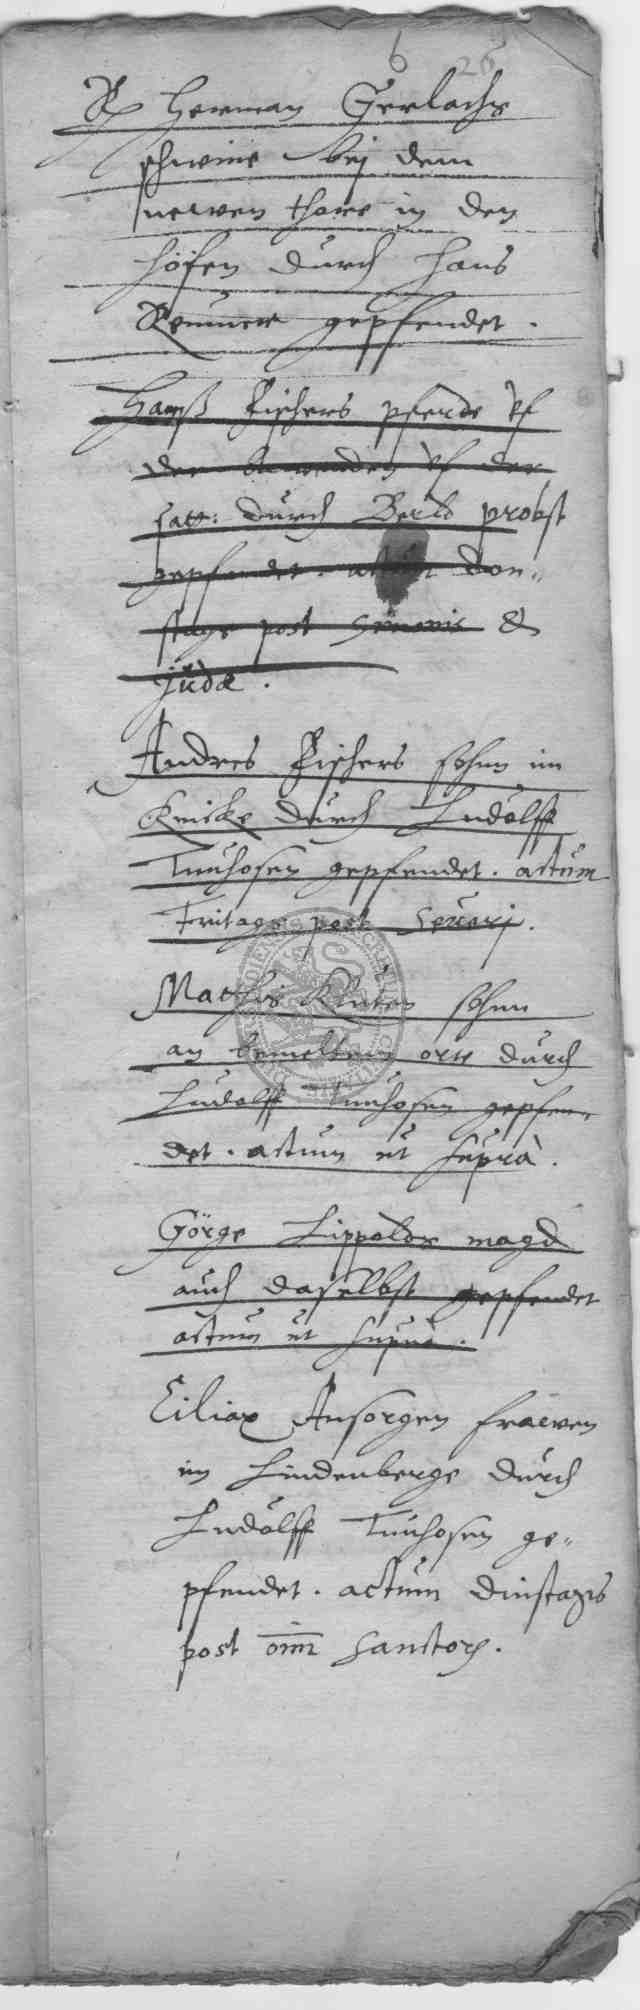 6 26
Herman Gerlachs
schweine bej dem
newen thore in den
höfen durch Hans
Reumen gepfendet.
Hanß Fischers pferde vf
der anwenden vf der
satt: durch Berld probst
gepfendet. actum Don„
stags post Simonis &
Judæ.
Andres Fischers sohnn im
Knicke durch Ludolff
Tunhosen gepfendet. actum
Fritags post Seueri.
Mathis Kluten sohnn
an bemeltem orte durch
Ludolff Tunhosen gepfen„
det. actum ut supra.
Görge Lippoldes magd
auch daselbst gepfendet
actum ut supra.
Ciliax Ansorgen frawen
im Lindenberge durch
Ludolff Tunhosen ge„
pfendet. actum Dinstags
post om̄ Sanctor.